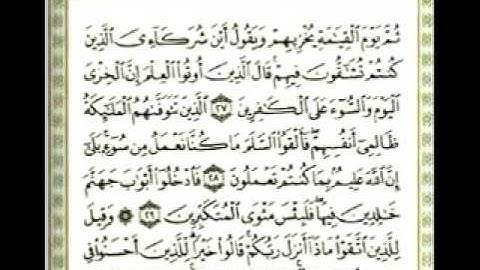 ثُمَّ يَوْمَ الْقِيَٰمَةِ يُخْزِيهِمْ وَيَقُولُ أَيْنَ شُرَكَآءِىَ الَّذِينَ
كُنتُمْ تُشَٰٓقُّونَ فِيهِمْ ۚ قَالَ الَّذِينَ أُوتُوا۟ الْعِلْمَ إِنَّ الْخِزْىَ
الْيَوْمَ وَالسُّوٓءَ عَلَى الْكَٰفِرِينَ ٢٧ الَّذِينَ تَتَوَفَّىٰهُمُ الْمَلَٰٓئِكَةُ
ظَالِمِىٓ أَنفُسِهِمْ ۖ فَأَلْقَوُا۟ السَّلَمَ مَا كُنَّا نَعْمَلُ مِن سُوٓءٍۭ ۚ بَلَىٰٓ
إِنَّ اللَّهَ عَلِيمٌۢ بِمَا كُنتُمْ تَعْمَلُونَ ٢٨ فَادْخُلُوٓا۟ أَبْوَٰبَ جَهَنَّمَ
خَٰلِدِينَ فِيهَا ۖ فَلَبِئْسَ مَثْوَى الْمُتَكَبِّرِينَ ٢٩ ۞ وَقِيلَ
لِلَّذِينَ اتَّقَوْا۟ مَاذَآ أَنزَلَ رَبُّكُمْ ۚ قَالُوا۟ خَيْرًا ۗ لِّلَّذِينَ أَحْسَنُوا۟ فِى